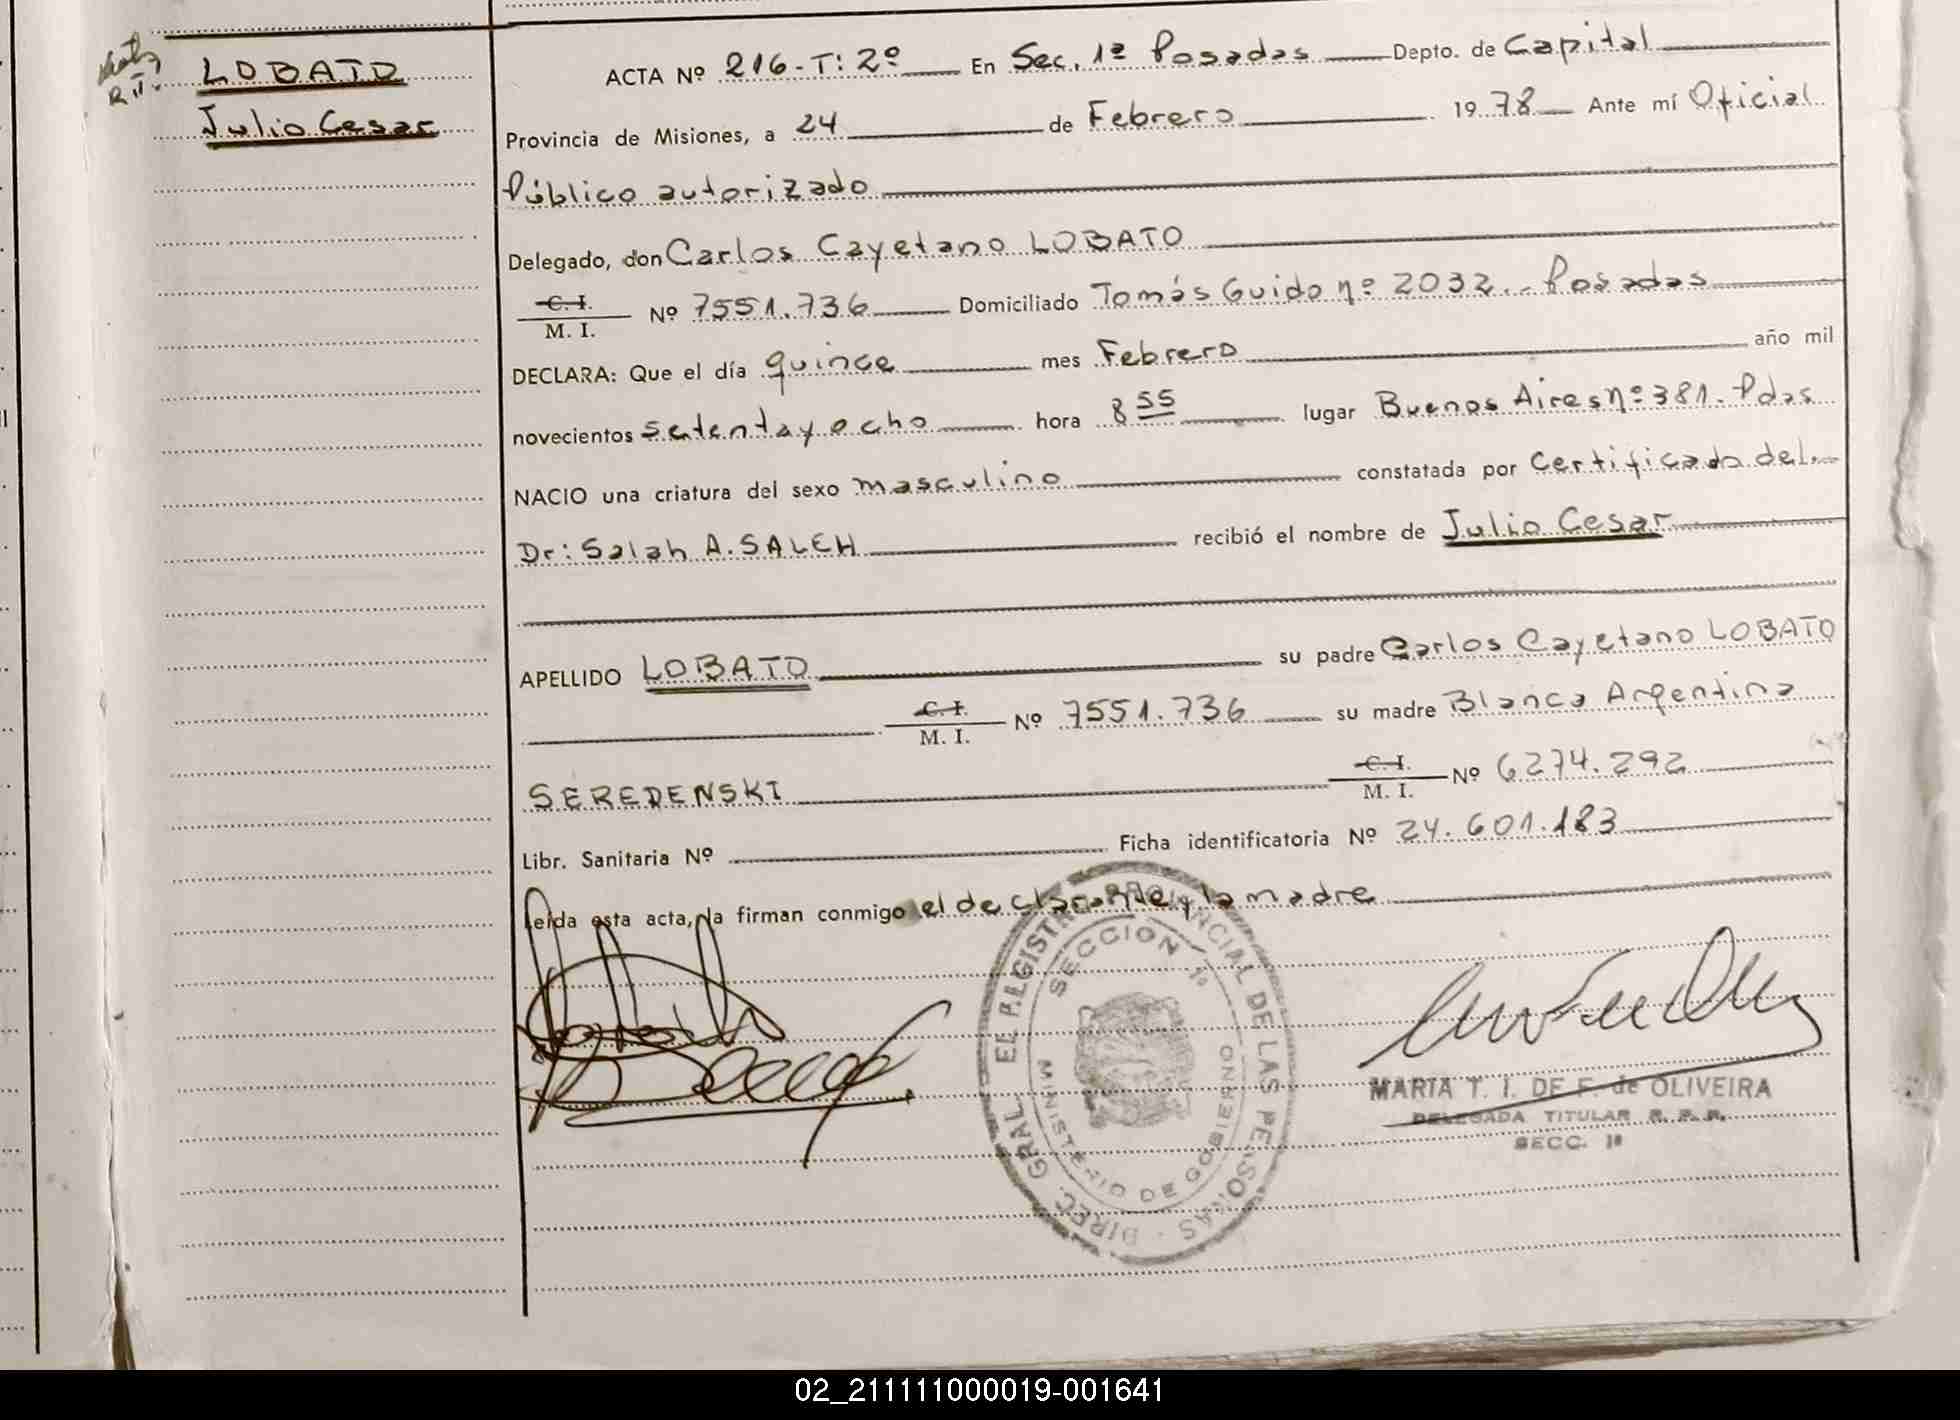 LOBATO
Julio Cesar
ACTA Nº 216-T: 2º En Sec. 1ª Posadas Depto. de Capital
Provincia de Misiones, a 24 de Febrero 1978 Ante mí Oficial
Público autorizado
Delegado, don Carlos Cayetano LOBATO
C. I.
M. I. Nº 7551.736 Domiciliado Tomás Guido nº 2032.- Posadas
DECLARA: Que el día quince mes Febrero año mil
novecientos setenta y ocho hora 8 55 lugar Buenos Aires nº 381. Pdas
NACIO una criatura del sexo masculino constatada por Certificado del
Dr: Salah A. SALEH recibió el nombre de Julio Cesar
APELLIDO LOBATO su padre Carlos Cayetano LOBATO
C. I.
M. I. Nº 7551.736 su madre Blanca Argentina
SEREDENSKI C. I.
M. I. Nº 6274.292
Libr. Sanitaria Nº Ficha identificatoria Nº 24.601.183
Leída esta acta, la firman conmigo el declarante y la madre
DIREC. GRAL. DE LAS PERSONAS
SECCION 1ª
MINISTERIO DE GOBIERNO
MARIA T. I. DE F. de OLIVEIRA
DELEGADA TITULAR R. P. P.
SECC. 1ª
02_211111000019-001641